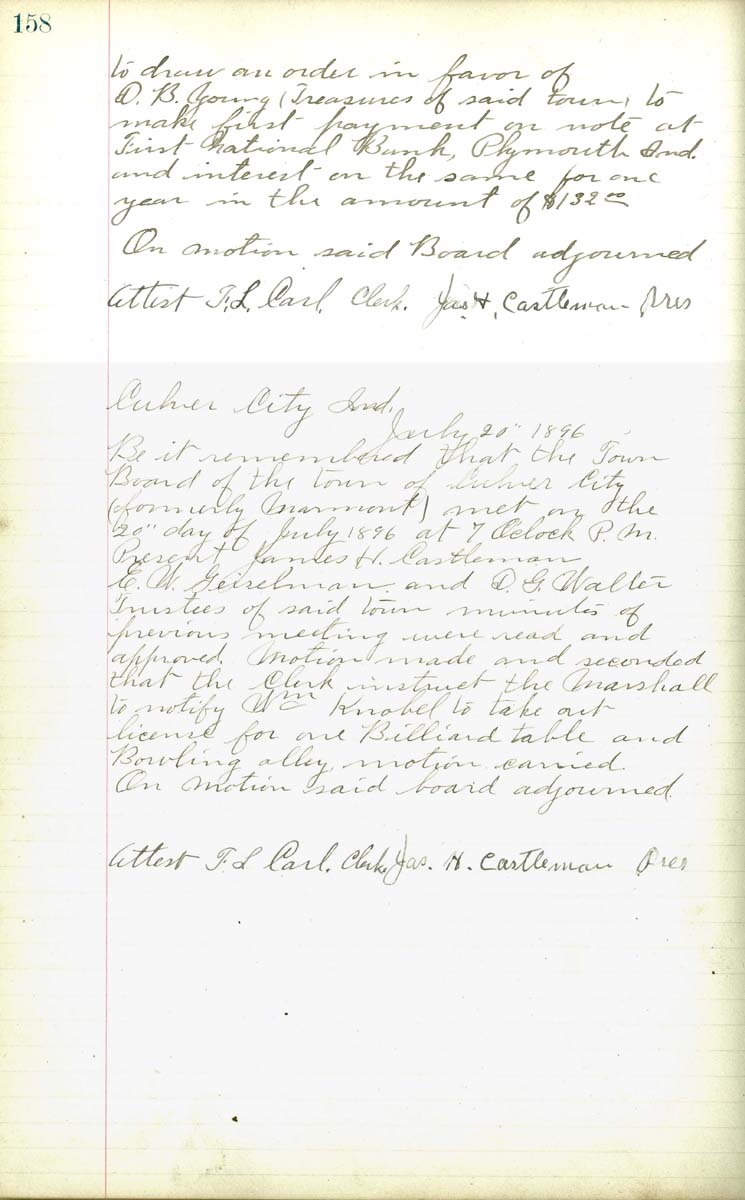 158
to draw an order in favor of
D. B. Young (Treasures of said town) to
make first payment on note at
First National Bank, Plymouth Ind.
and interest on the same for one
year in the amount of $132 00
On motion said Board adjourned
Attest F. L. Carl, Clerk. Jas. H. Castleman Pres
Culver City Ind.
July 20" 1896
Be it remembered that the Town
Board of the town of Culver City
(formerly Marmont) met on the
20" day of July 1896 at 7 Oclock P. M.
Present James H. Castleman
E. W. Geiselman and D. G. Walter
Trustees of said town minutes of
previous meeting were read and
approved. Motion made and seconded
that the Clerk instruct the Marshall
to notify Wm Knobel to take out
license for one Billiard table and
Bowling alley motion carried.
On motion said board adjourned.
Attest F. L Carl. Clerk Jas. H. Castleman Pres